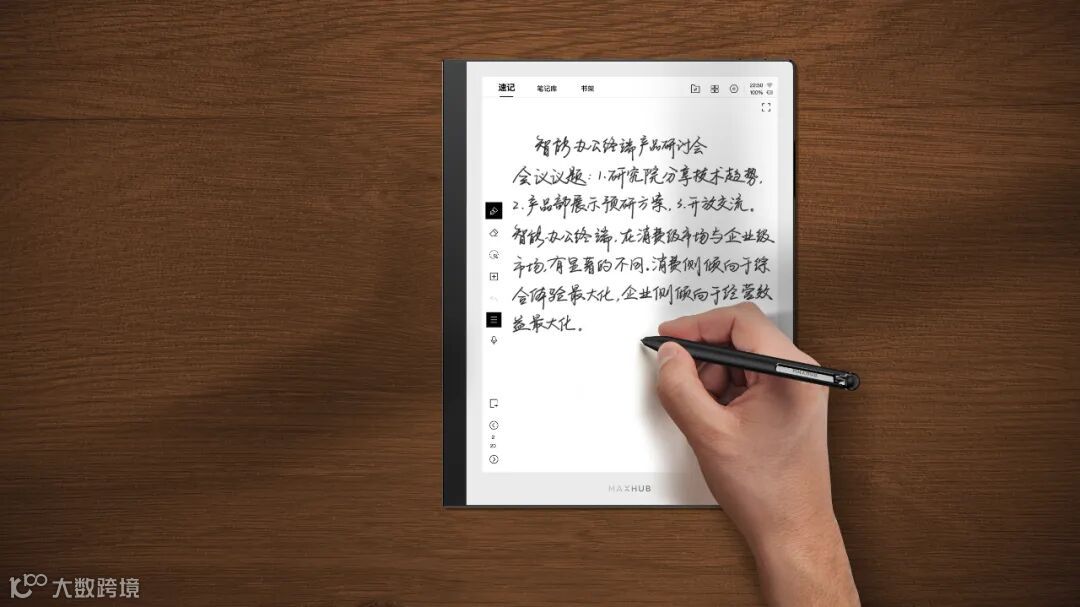 速记 笔记库 书架
22:50
100%
智能办公终端产品研讨会
会议议题：1.研究院分享技术趋势，
2.产品部展示预研方案，3.开放交流。
智能办公终端，在消费级市场与企业级
市场，有显著的不同。消费侧倾向于综
合体验最大化，企业侧倾向于经营效
益最大化。
2
20
MAXHUB
MAXHUB
大数跨境